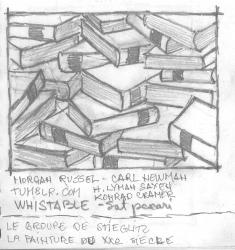 MORGAN RUSSEL - CARL NEWMAN
TUMBLR.COM H. LYMAN SAYEN
KONRAD CRAMER
WHISTABLE - Sat pecari
LE GROUPE DE STIEGLITZ
LA PAINTURE DU XXE SIECLE